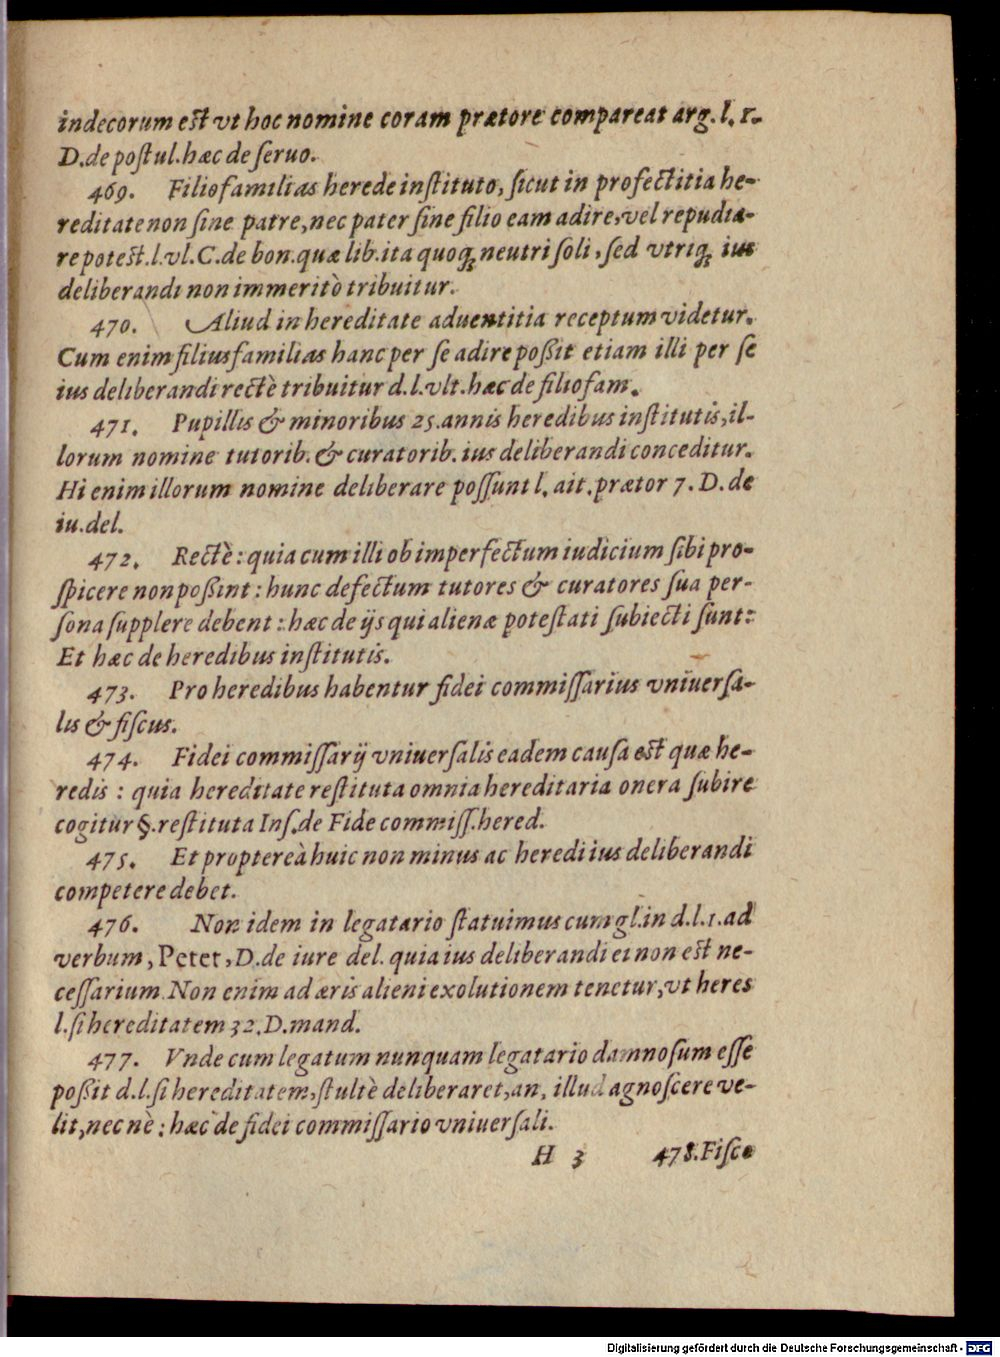 indecorum est vt hoc nomine coram prætore compareat arg. l. 1.
D. de postul. hæc de seruo.
469. Filiofamilias herede instituto, sicut in profectitia he-
reditate non sine patre, nec pater sine filio eam adire, vel repudia-
re potest. l. vl. C. de bon. quæ lib. ita quoq; neutri soli, sed vtriq; ius
deliberandi non immeritò tribuitur.
470. Aliud in hereditate aduentitia receptum videtur.
Cum enim filiusfamilias hanc per se adire poßit etiam illi per se
ius deliberandi rectè tribuitur d. l. vlt. hæc de filiofam.
471. Pupillis & minoribus 25. annis heredibus institutis, il-
lorum nomine tutorib. & curatorib. ius deliberandi conceditur.
Hi enim illorum nomine deliberare possunt l. ait. prætor 7. D. de
iu. del.
472. Rectè: quia cum illi ob imperfectum iudicium sibi pro-
spicere non poßint: hunc defectum tutores & curatores sua per-
sona supplere debent: hæc de ijs qui alienæ potestati subiecti sunt:
Et hæc de heredibus institutis.
473. Pro heredibus habentur fidei commissarius vniuersa-
lis & fiscus.
474. Fidei commissarij vniuersalis eadem causa est quæ he-
redis: quia hereditate restituta omnia hereditaria onera subire
cogitur §. restituta Ins. de Fide commiss. hered.
475. Et proptereà huic non minus ac heredi ius deliberandi
competere debet.
476. Non idem in legatario statuimus cum gl. in d. l. 1. ad
verbum, Petet, D. de iure del. quia ius deliberandi ei non est ne-
cessarium. Non enim ad æris alieni exolutionem tenetur, vt heres
l. si hereditatem 32. D. mand.
477. Vnde cum legatum nunquam legatario damnosum esse
poßit d. l. si hereditatem, stultè deliberaret, an, illud agnoscere ve-
lit, nec nè: hæc de fidei commissario vniuersali.
H 3 478. Fisco
Digitalisierung gefördert durch die Deutsche Forschungsgemeinschaft - DFG